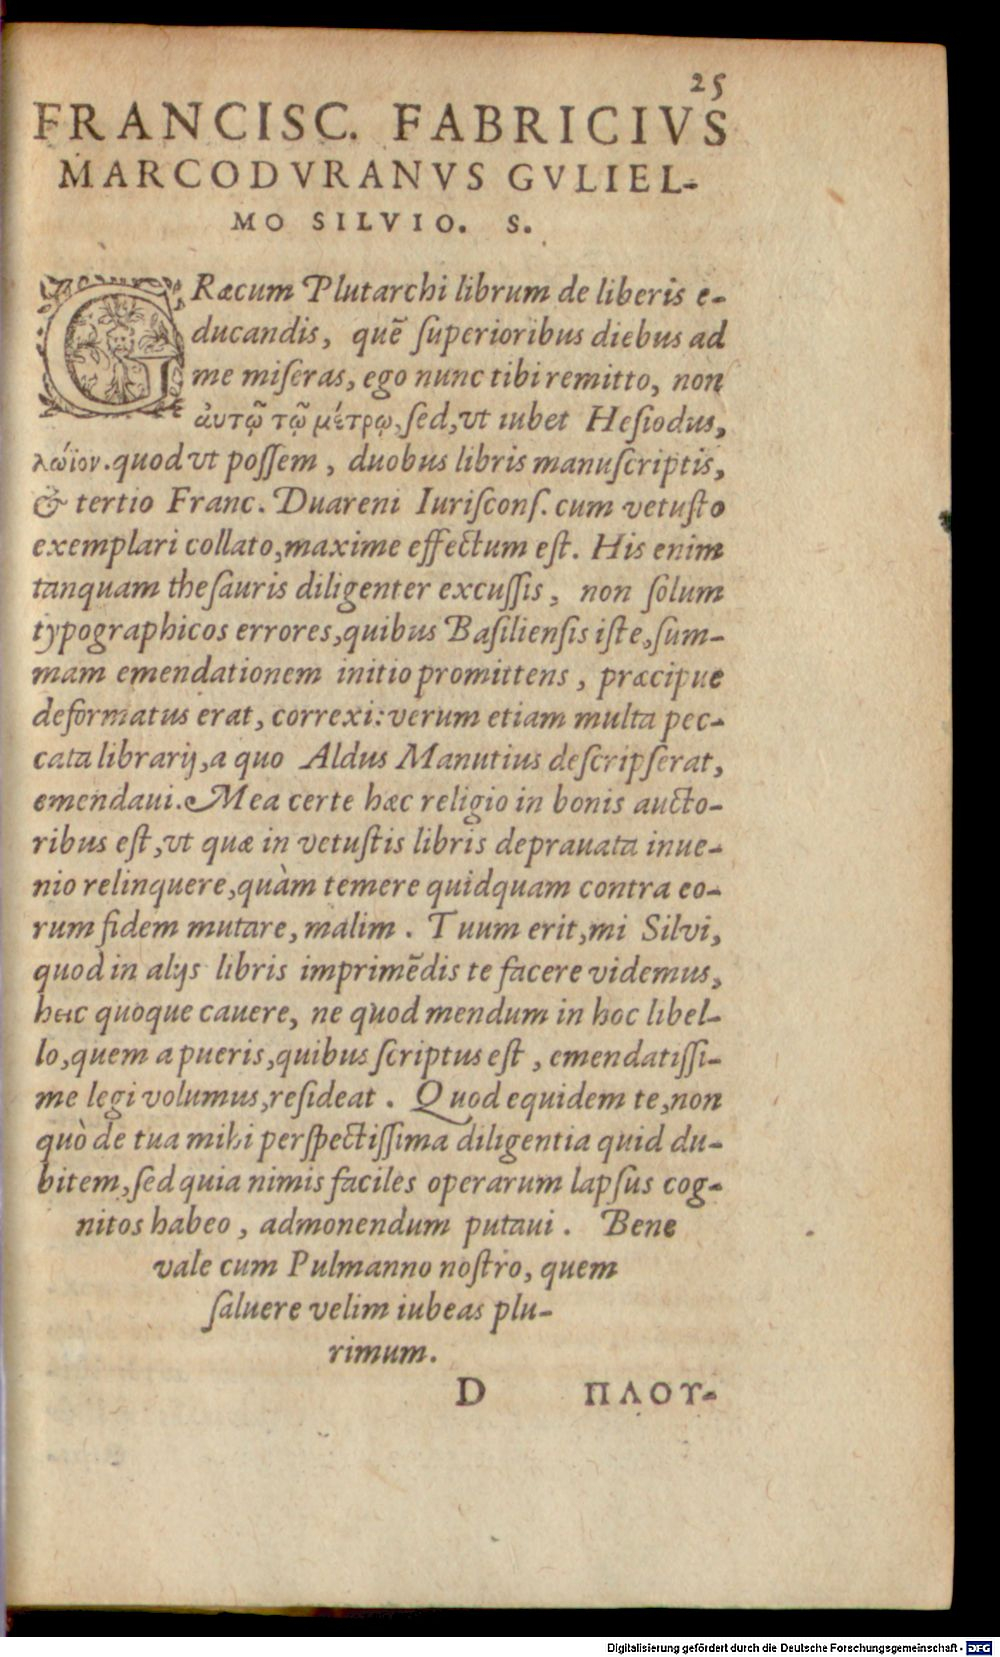 25
FRANCISC. FABRICIVS
MARCODVRANVS GVLIEL-
MO SILVIO. S.
GRæcum Plutarchi librum de liberis e-
ducandis, quẽ ſuperioribus diebus ad
me miſeras, ego nunc tibi remitto, non
αὐτῷ τῷ μέτρῳ, ſed, vt iubet Heſiodus,
λώϊον. quod vt poſſem, duobus libris manuſcriptis,
& tertio Franc. Duareni Iuriſconſ. cum vetuſto
exemplari collato, maxime effectum eſt. His enim
tanquam theſauris diligenter excuſſis, non ſolum
typographicos errores, quibus Baſilienſis iſte, ſum-
mam emendationem initio promittens, præcipue
deformatus erat, correxi: verum etiam multa pec-
cata librarij, a quo Aldus Manutius deſcripſerat,
emendaui. Mea certe hæc religio in bonis aucto-
ribus eſt, vt quæ in vetuſtis libris deprauata inue-
nio relinquere, quàm temere quidquam contra eo-
rum fidem mutare, malim. Tuum erit, mi Silvi,
quod in alijs libris imprimẽdis te facere videmus,
hac quoque cauere, ne quod mendum in hoc libel-
lo, quem a pueris, quibus ſcriptus eſt, emendatiſſi-
me legi volumus, reſideat. Quod equidem te, non
quò de tua mihi perſpectiſſima diligentia quid du-
bitem, ſed quia nimis faciles operarum lapſus cog-
nitos habeo, admonendum putaui. Bene
vale cum Pulmanno noſtro, quem
ſaluere velim iubeas plu-
rimum.
D ΠΛΟΥ-
Digitalisierung gefördert durch die Deutsche Forschungsgemeinschaft - DFG